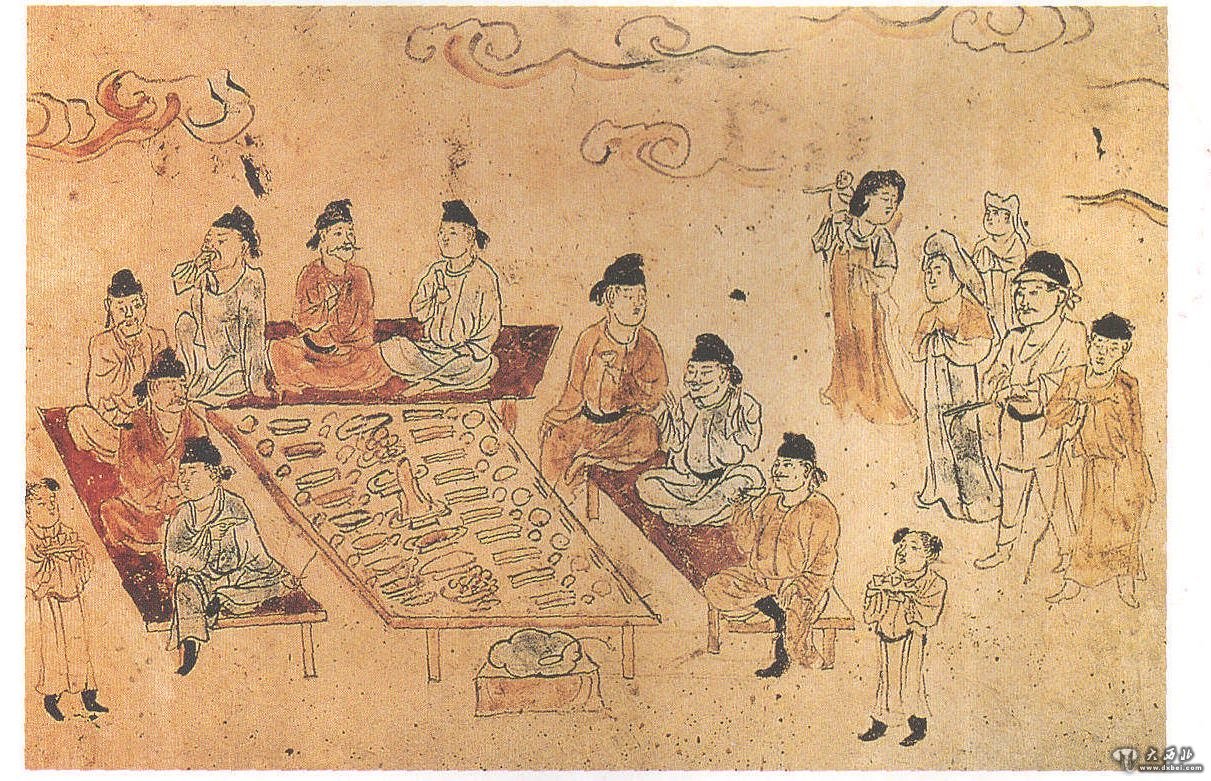 大西北
www.dxbei.com